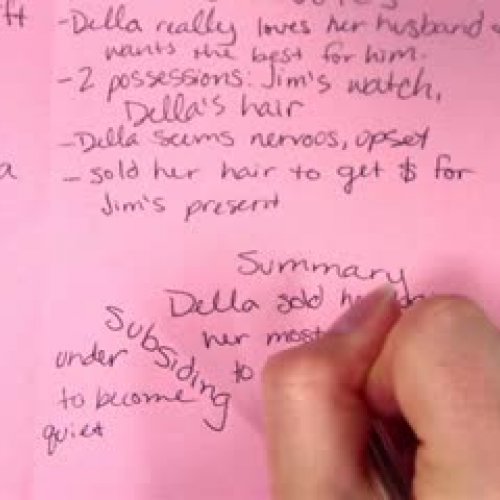 ft
-Della really loves her husband
wants the best for him.
-2 possessions: Jim's watch,
Della's hair
-Della seems nervous, upset
a
- sold her hair to get $ for
Jim's present
Summary
Della sold
her most
to
Subsiding
under
to become
quiet